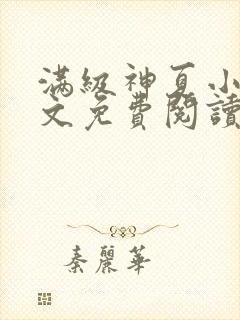 滿級神頁小
文免費閱讀
秦麗華